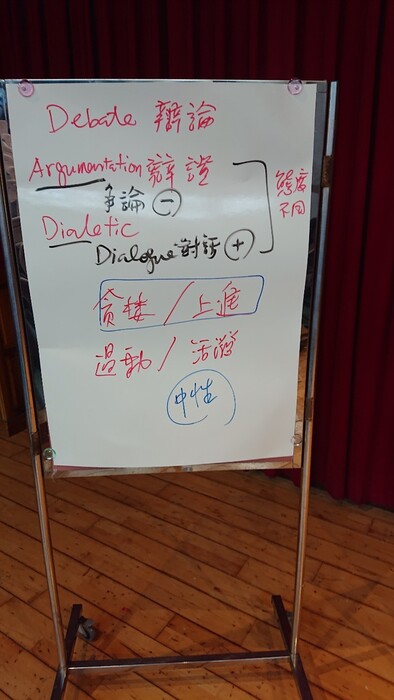 Debate 辯論
Argumentation 辯證
爭論 ⊖
Dialetic
Dialogue 對話 ⊕
態度
不同
貪婪 / 上進
過動 / 活潑
中性